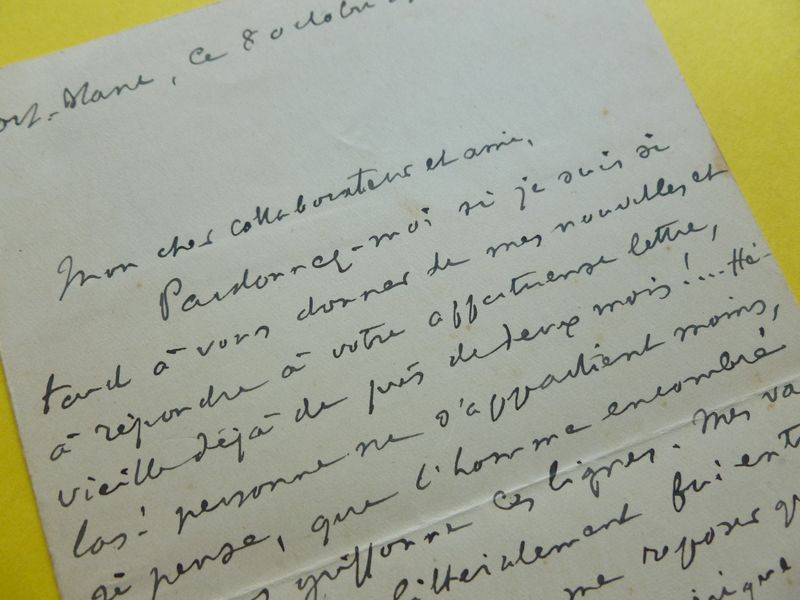 ce 8 octobre
Mon cher collaborateur et ami,
Pardonnez-moi si je suis si
tard à vous donner de mes nouvelles et
à répondre à votre affectueuse lettre,
vieille déjà de près de deux mois!... Hé-
las! personne ne s'appartient moins,
je pense, que l'homme encombré
griffonne ces lignes. Mes va
littéralement fui ent
me reposer qu